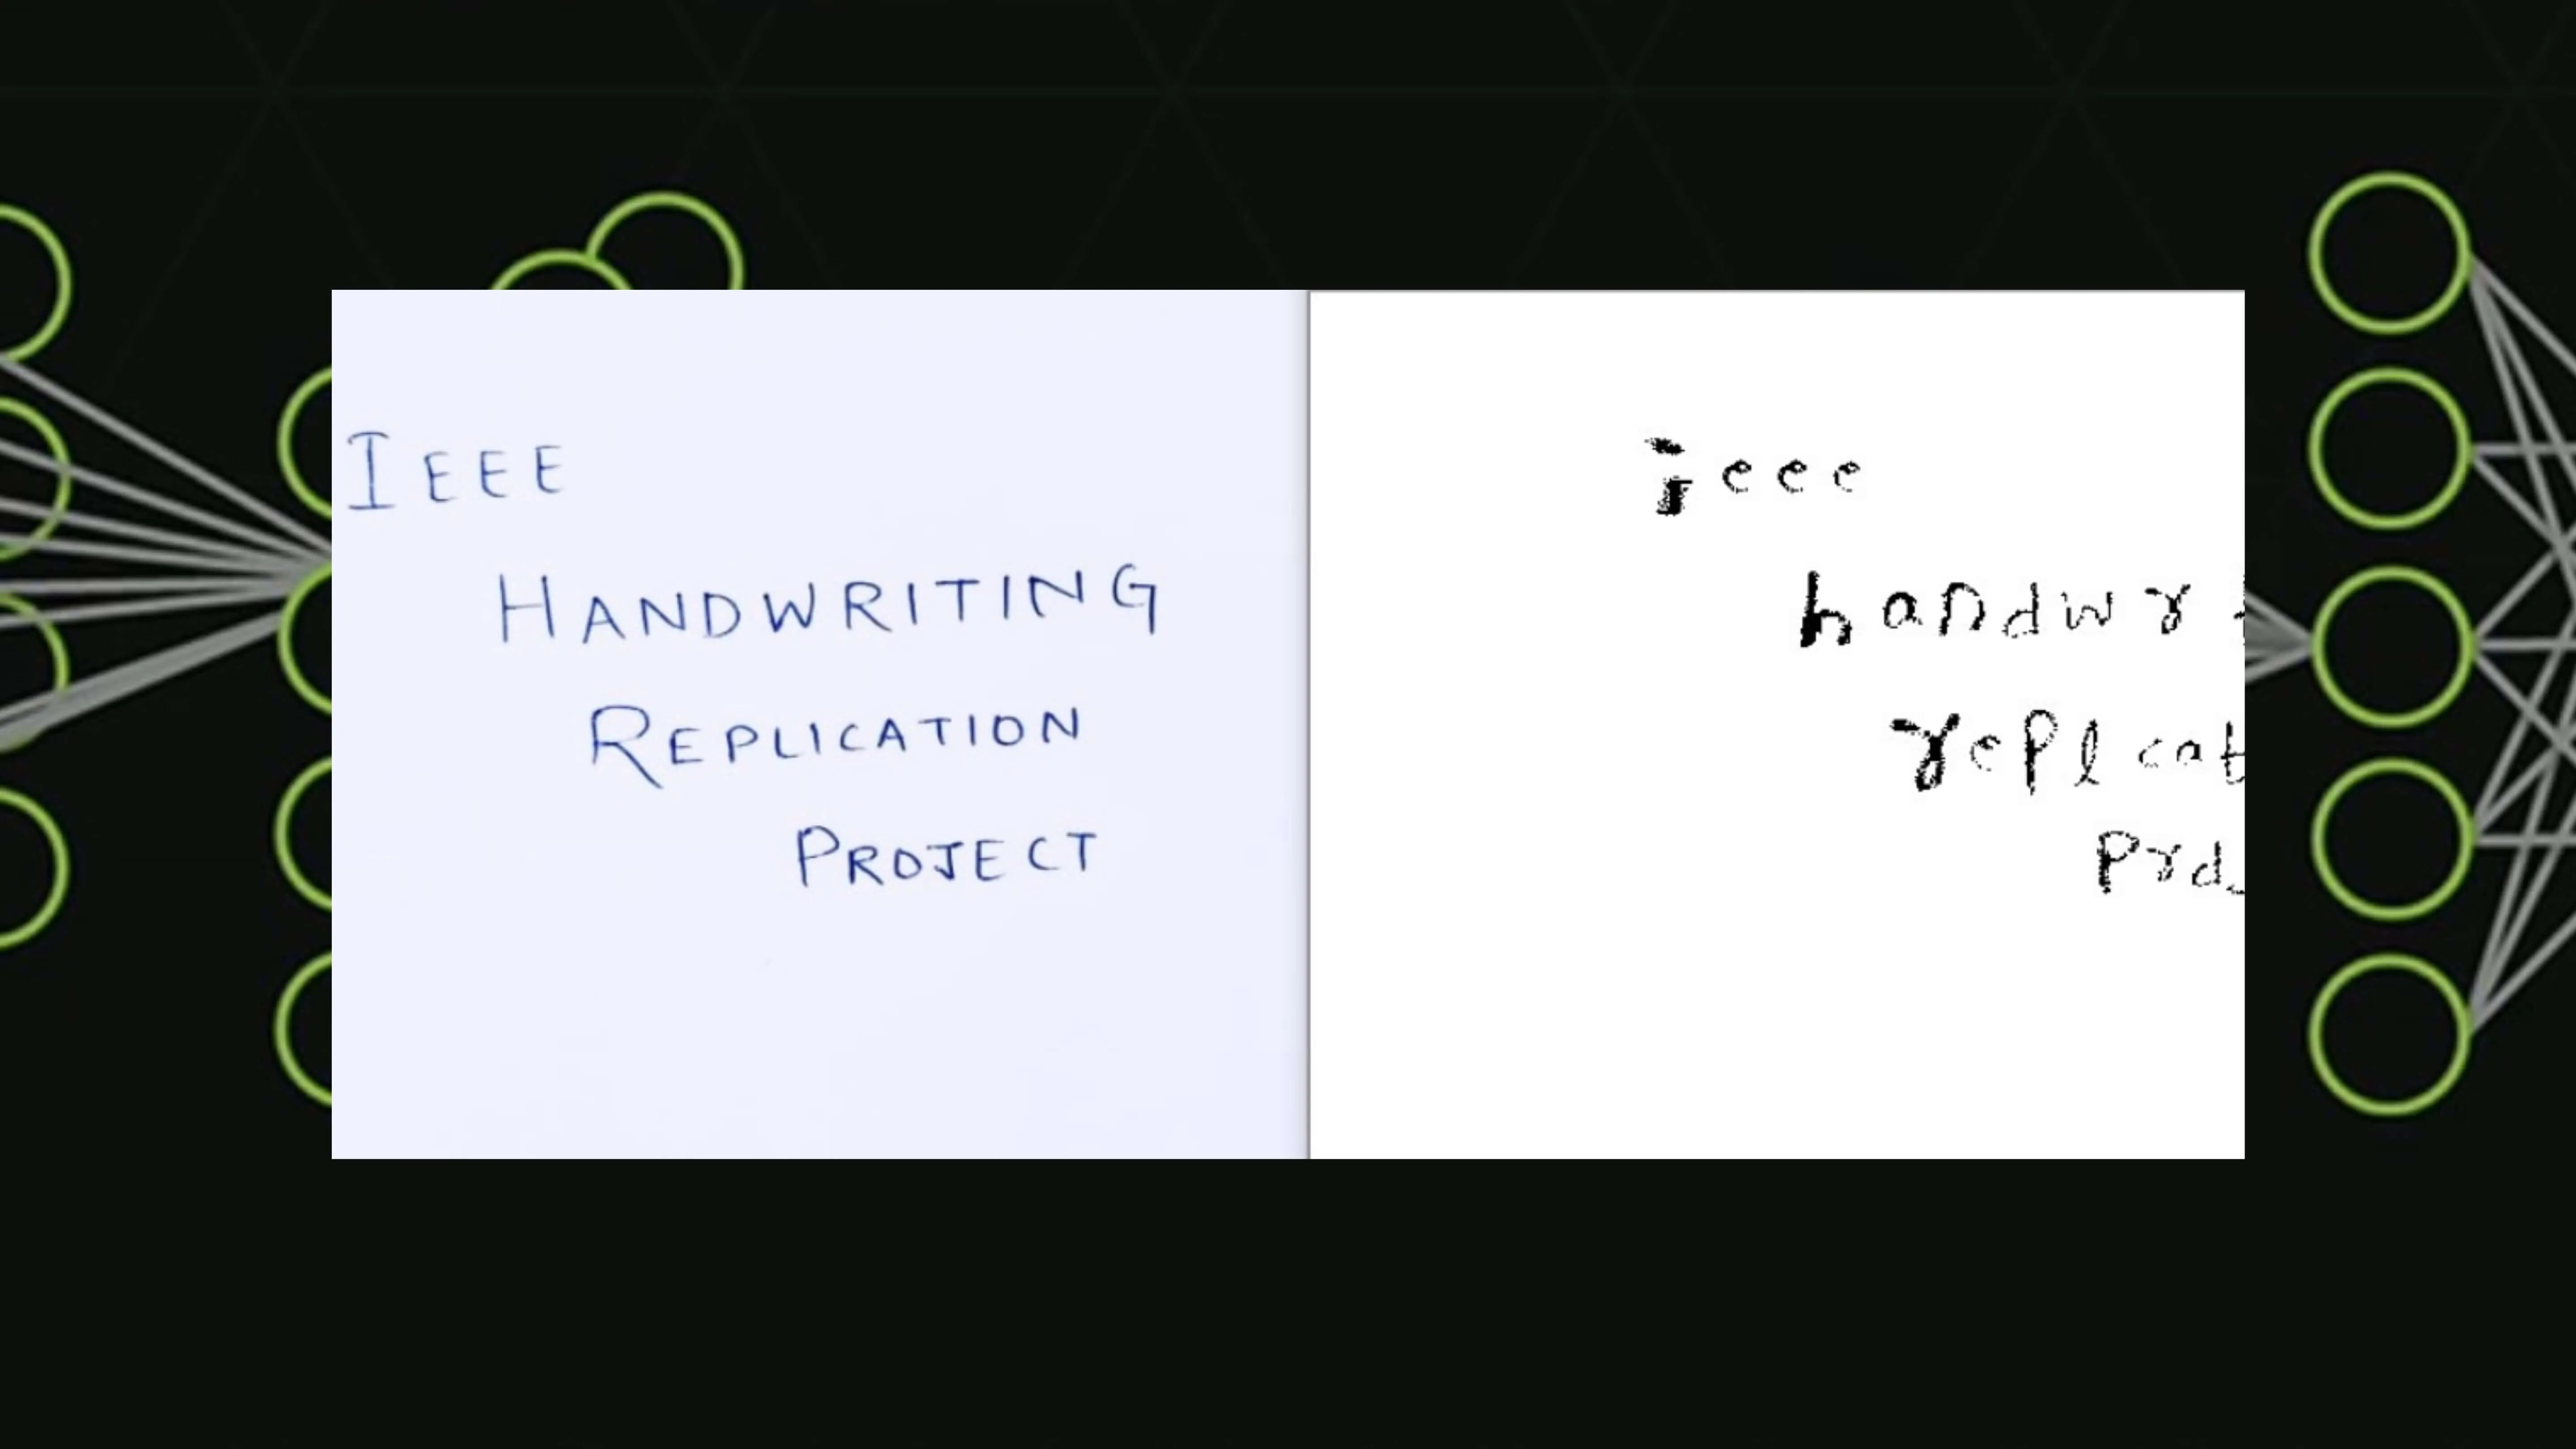 IEEE
HANDWRITING
REPLICATION
PROJECT
ieee
handwr
replcat
prd